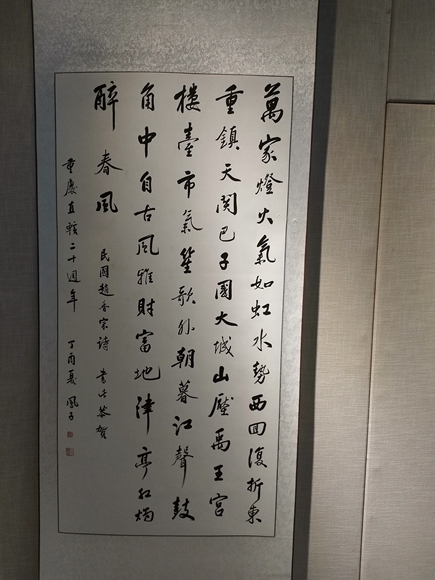 萬家燈火氣如虹水勢西回復折東
重鎮天開巴子國大城山壓禹王宮
樓臺市氣笙歌外朝暮江聲鼓
角中自古風雅財富地津亭紅燭
醉春風
民國趙香宋詩 書此恭賀
重慶直轄二十週年 丁酉夏 風子